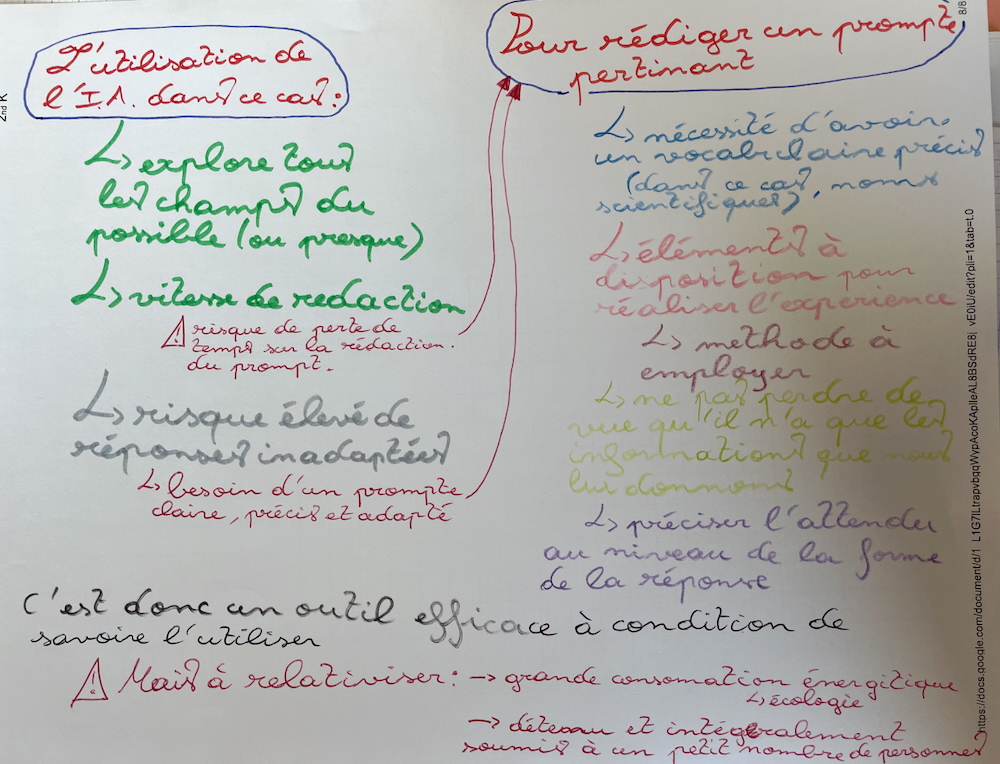 L'utilisation de
l'I.A. dans ce cas :
↳ explore tous
les champs du
possible (ou presque)
↳ vitesse de redaction
⚠ risque de perte de
temps sur la rédaction
du prompt.
↳ risque élevé de
réponses inadaptées
↳ besoin d'un prompte
claire, précis et adapté
Pour rédiger un prompte
pertinant
↳ nécessité d'avoir
un vocabulaire précis
(dans ce cas, noms
scientifiques)
↳ éléments à
disposition pour
réaliser l'experience
↳ methode à
employer
↳ ne pas perdre de
vue qu'il n'a que les
informations que nous
lui donnons
↳ préciser l'attendu
au niveau de la forme
de la réponse
C'est donc un outil efficace à condition de
savoire l'utiliser
⚠ Mais à relativiser : → grande consomation énergitique
↳ écologie
→ détenu et intégralement
soumis à un petit nombre de personnes
2nd K
8/8